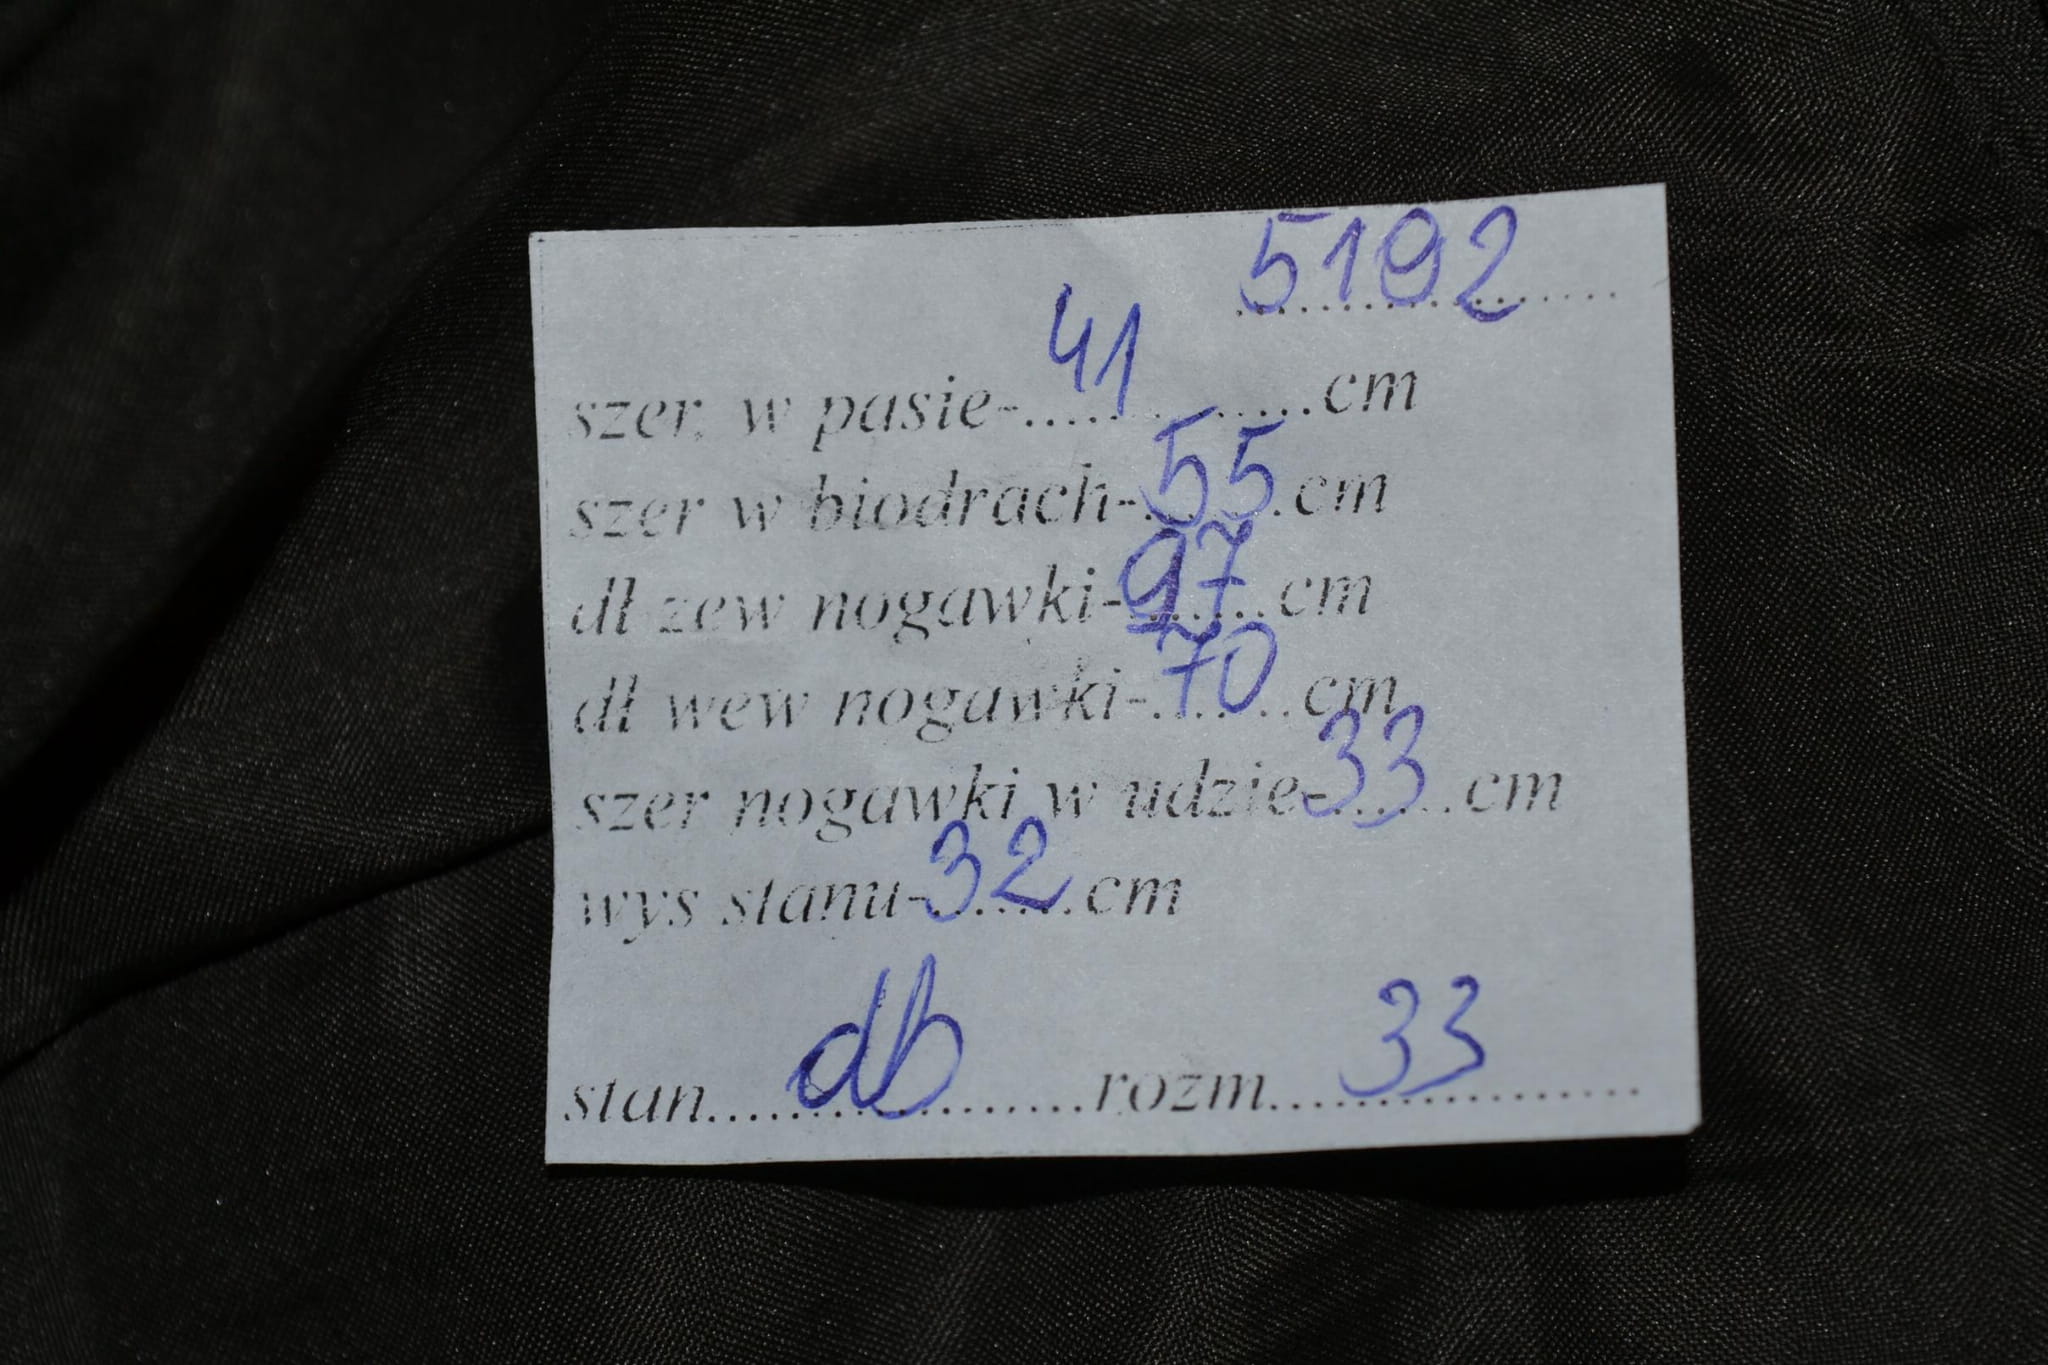 5192
szer. w pasie-41cm
szer w biodrach-55cm
dł zew nogawki-97cm
dł wew nogawki-70cm
szer nogawki w udzie-33cm
wys stanu-32cm
stan db rozm 33